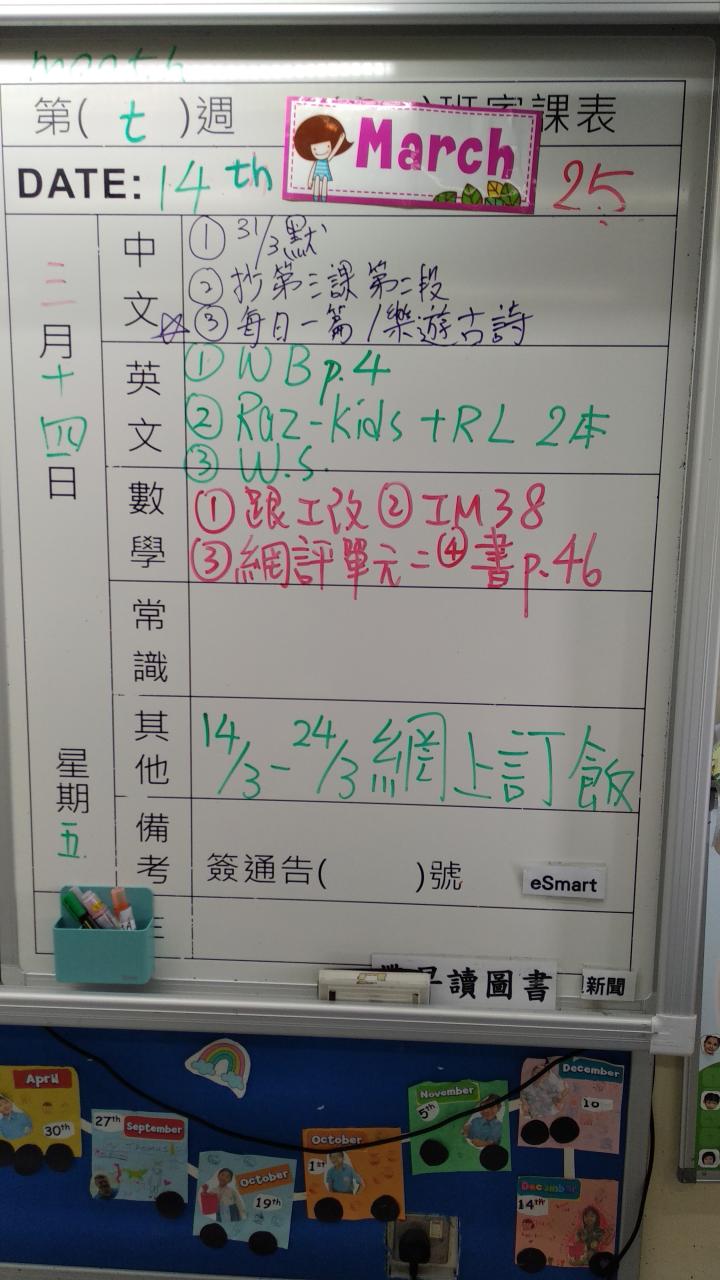 month
第( t )週
班家課表
DATE: 14 th March 25
三月十四日
星期五
中文
① 31/3默
② 抄第三課第二段
☆③ 每日一篇/樂遊古詩
英文
① WB p.4
② Raz-Kids + RL 2本
③ W.S.
數學
① 跟工改 ② IM38
③ 網評單元二 ④ 書p.46
常識
其他
14/3-24/3 網上訂飯
備考
簽通告( )號
eSmart
讀圖書
新聞
April
30th
27th
September
October
19th
October
1st
November
5th
December
10
December
14th